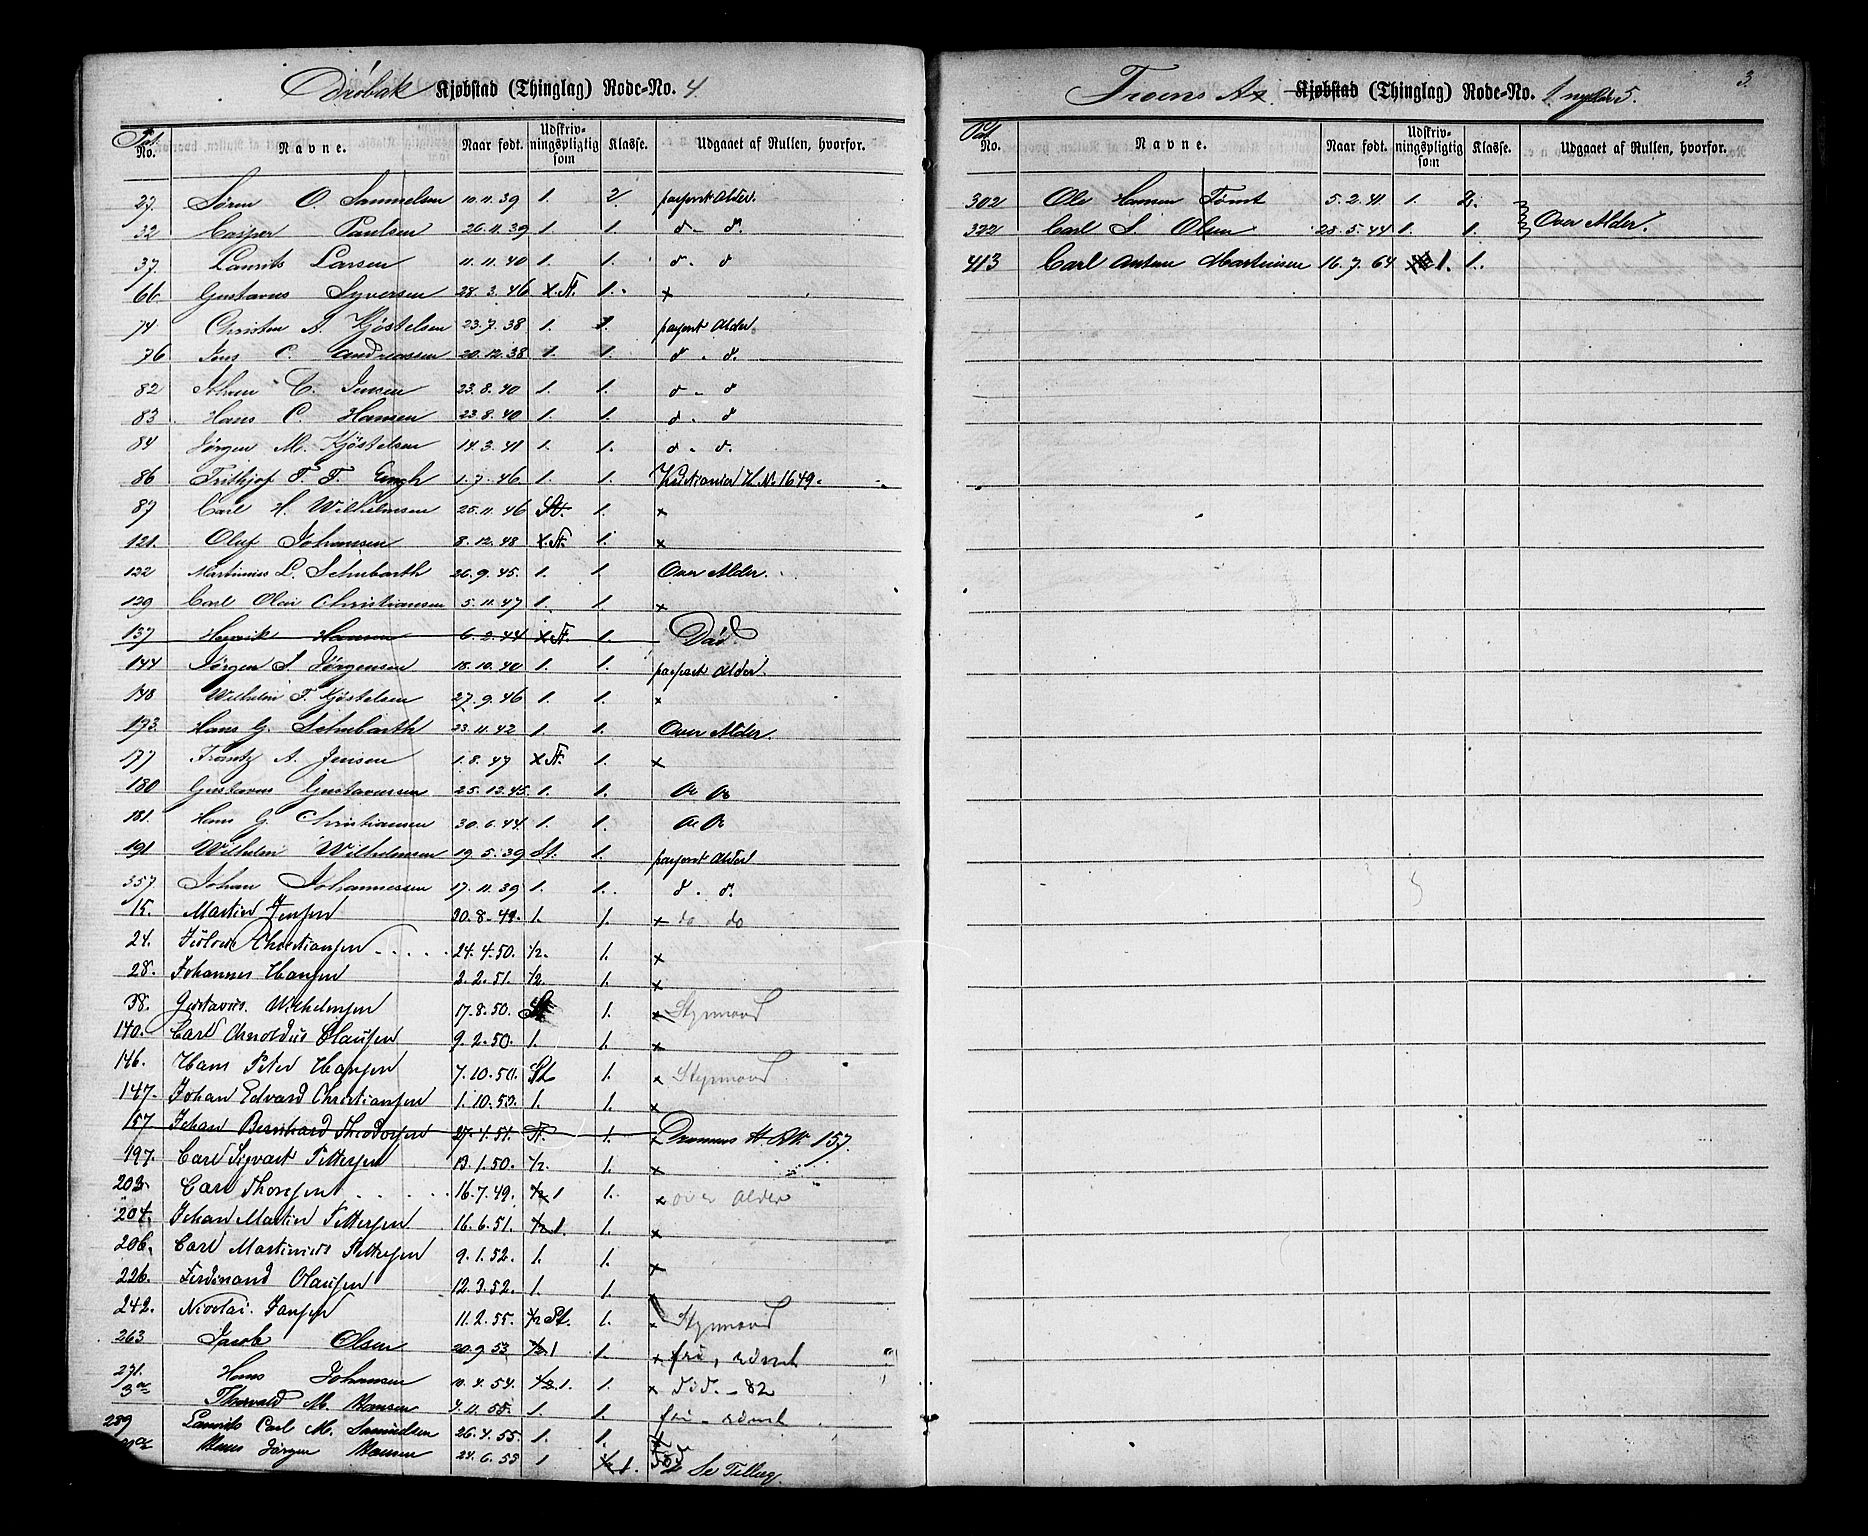 Drøbak Kjøbstad (Thinglag) Rode-No. 4
Pat. No. Navne. Naar født. Udskrivningspligtig som Klasse. Udgaaet af Rullen, hvorfor.
27. Søren O. Samuelsen 10.11.39 1. 2. passert Alder.
32 Casper Paulsen 26.11.39 1. 1. d. d.
37. Laurits Larsen 11.11.40 1. 1. d. d
66 Gustavus Syversen 28.3.46 x. St. 1. x
74 Christen A. Kjøstelsen 23.7.38 1. 1. passert Alder.
76 Jens C. Andreassen 20.12.38 1. 1. d. d.
82 Johan C. Jensen 23.8.40 1. 1. d. d
83. Hans C. Hansen 23.8.40 1. 1. d. d
84 Jørgen M. Kjøstelsen 14.3.41 1. 1. d. d.
86 Frithjof T. F. Engh 1.7.46 1. 1. Kristiania H. No. 1649.
87 Carl H. Wilhelmsen 25.11.46 St. 1. x
121. Oluf Johansen 8.12.48 x. St. 1. x
122 Martinius L. Schubarth 26.9.45. 1. 1 Over Alder.
129 Carl Olai Christiansen 5.11.47 1. 1. x
137 Henrik Hansen 6.2.44 x St. 1. Død
144 Jørgen S. Jørgensen 18.10.40 1. 1. passert Alder.
148 Wilhelm F. Kjøstelsen 27.9.46 1. 1. x
173. Hans G. Schubarth 23.11.42 1. 1. Over Alder.
177 Frantz A. Jensen 1.8.47 x St. 1. x
180 Gustavus Gustavussen 25.12.45. 1. 1. do do
181. Hans G. Christiansen 30.6.44. 1. 1. do do
191 Wilhelm Wilhelmsen 19.5.39 St. 1. passert Alder
357 Johan Johannessen 17.11.39 1. 1. d. d.
15. Martin Jensen 30.8.49. 1. 1. x do do
24. Isidore Christiansen 24.4.50. 1/2. 1. x
28. Johannes Hansen 2.2.51. 1/2 1. x
38. Gustavus. Wilhelmsen 17.8.50. St 1. x Styrmand
140. Carl Arnoldus Olausen 9.2.50. 1. 1. x
146. Hans Peter Hansen 7.10.50. St 1. x Styrmand.
147. Johan Edvard Christiansen 1.10.50. 1. 1. x
157 Johan Bernhard Theodorsen 27.4.51. St. 1. Drammens H. No. 157.
197. Carl Sigvart Pettersen 13.1.50. 1/2. 1. x
203. Carl Thoresen 16.7.49. 1/2 1 1. x over Alder
204. Johan Martin Pettersen 16.6.51. 1/2. 1. 1. x
206. Carl Martinius Pettersen 9.1.52. 1. 1. x
226. Ferdinand Olausen 12.3.52. 1. 1.
242. Nicolai. Jansen 11.2.55. 1/2 St. 1. x Styrmand
263 Jacob Olsen 20.9.53 1/2. 1 1. x fri, rømt
271. Hans Johansen 10.4.54. 1/2. 1. 1. x død. - 82
3a Thorvald M. Hansen 4.11.55. 1. 1. fri - rømt
289 Laurits Carl M. Samuelsen 26.4.55. 1. 1. x
Hans Jørgen Hansen 24.6.55 1 1/2 1. Død x Se Tillæg.
3.
Froens Ax. Kjøbstad (Thinglag) Rode-No. 1, nylén 5.
Pat. No. Navne. Naar født. Udskrivningspligtig som Klasse. Udgaaet af Rullen, hvorfor.
302 Ole Hansen Tømt 5.2.41 1. 2.
322 Carl S. Olsen 28.5.44 1. 1. Over Alder.
413 Carl Anton Martinsen 16.7.64 1. 1.